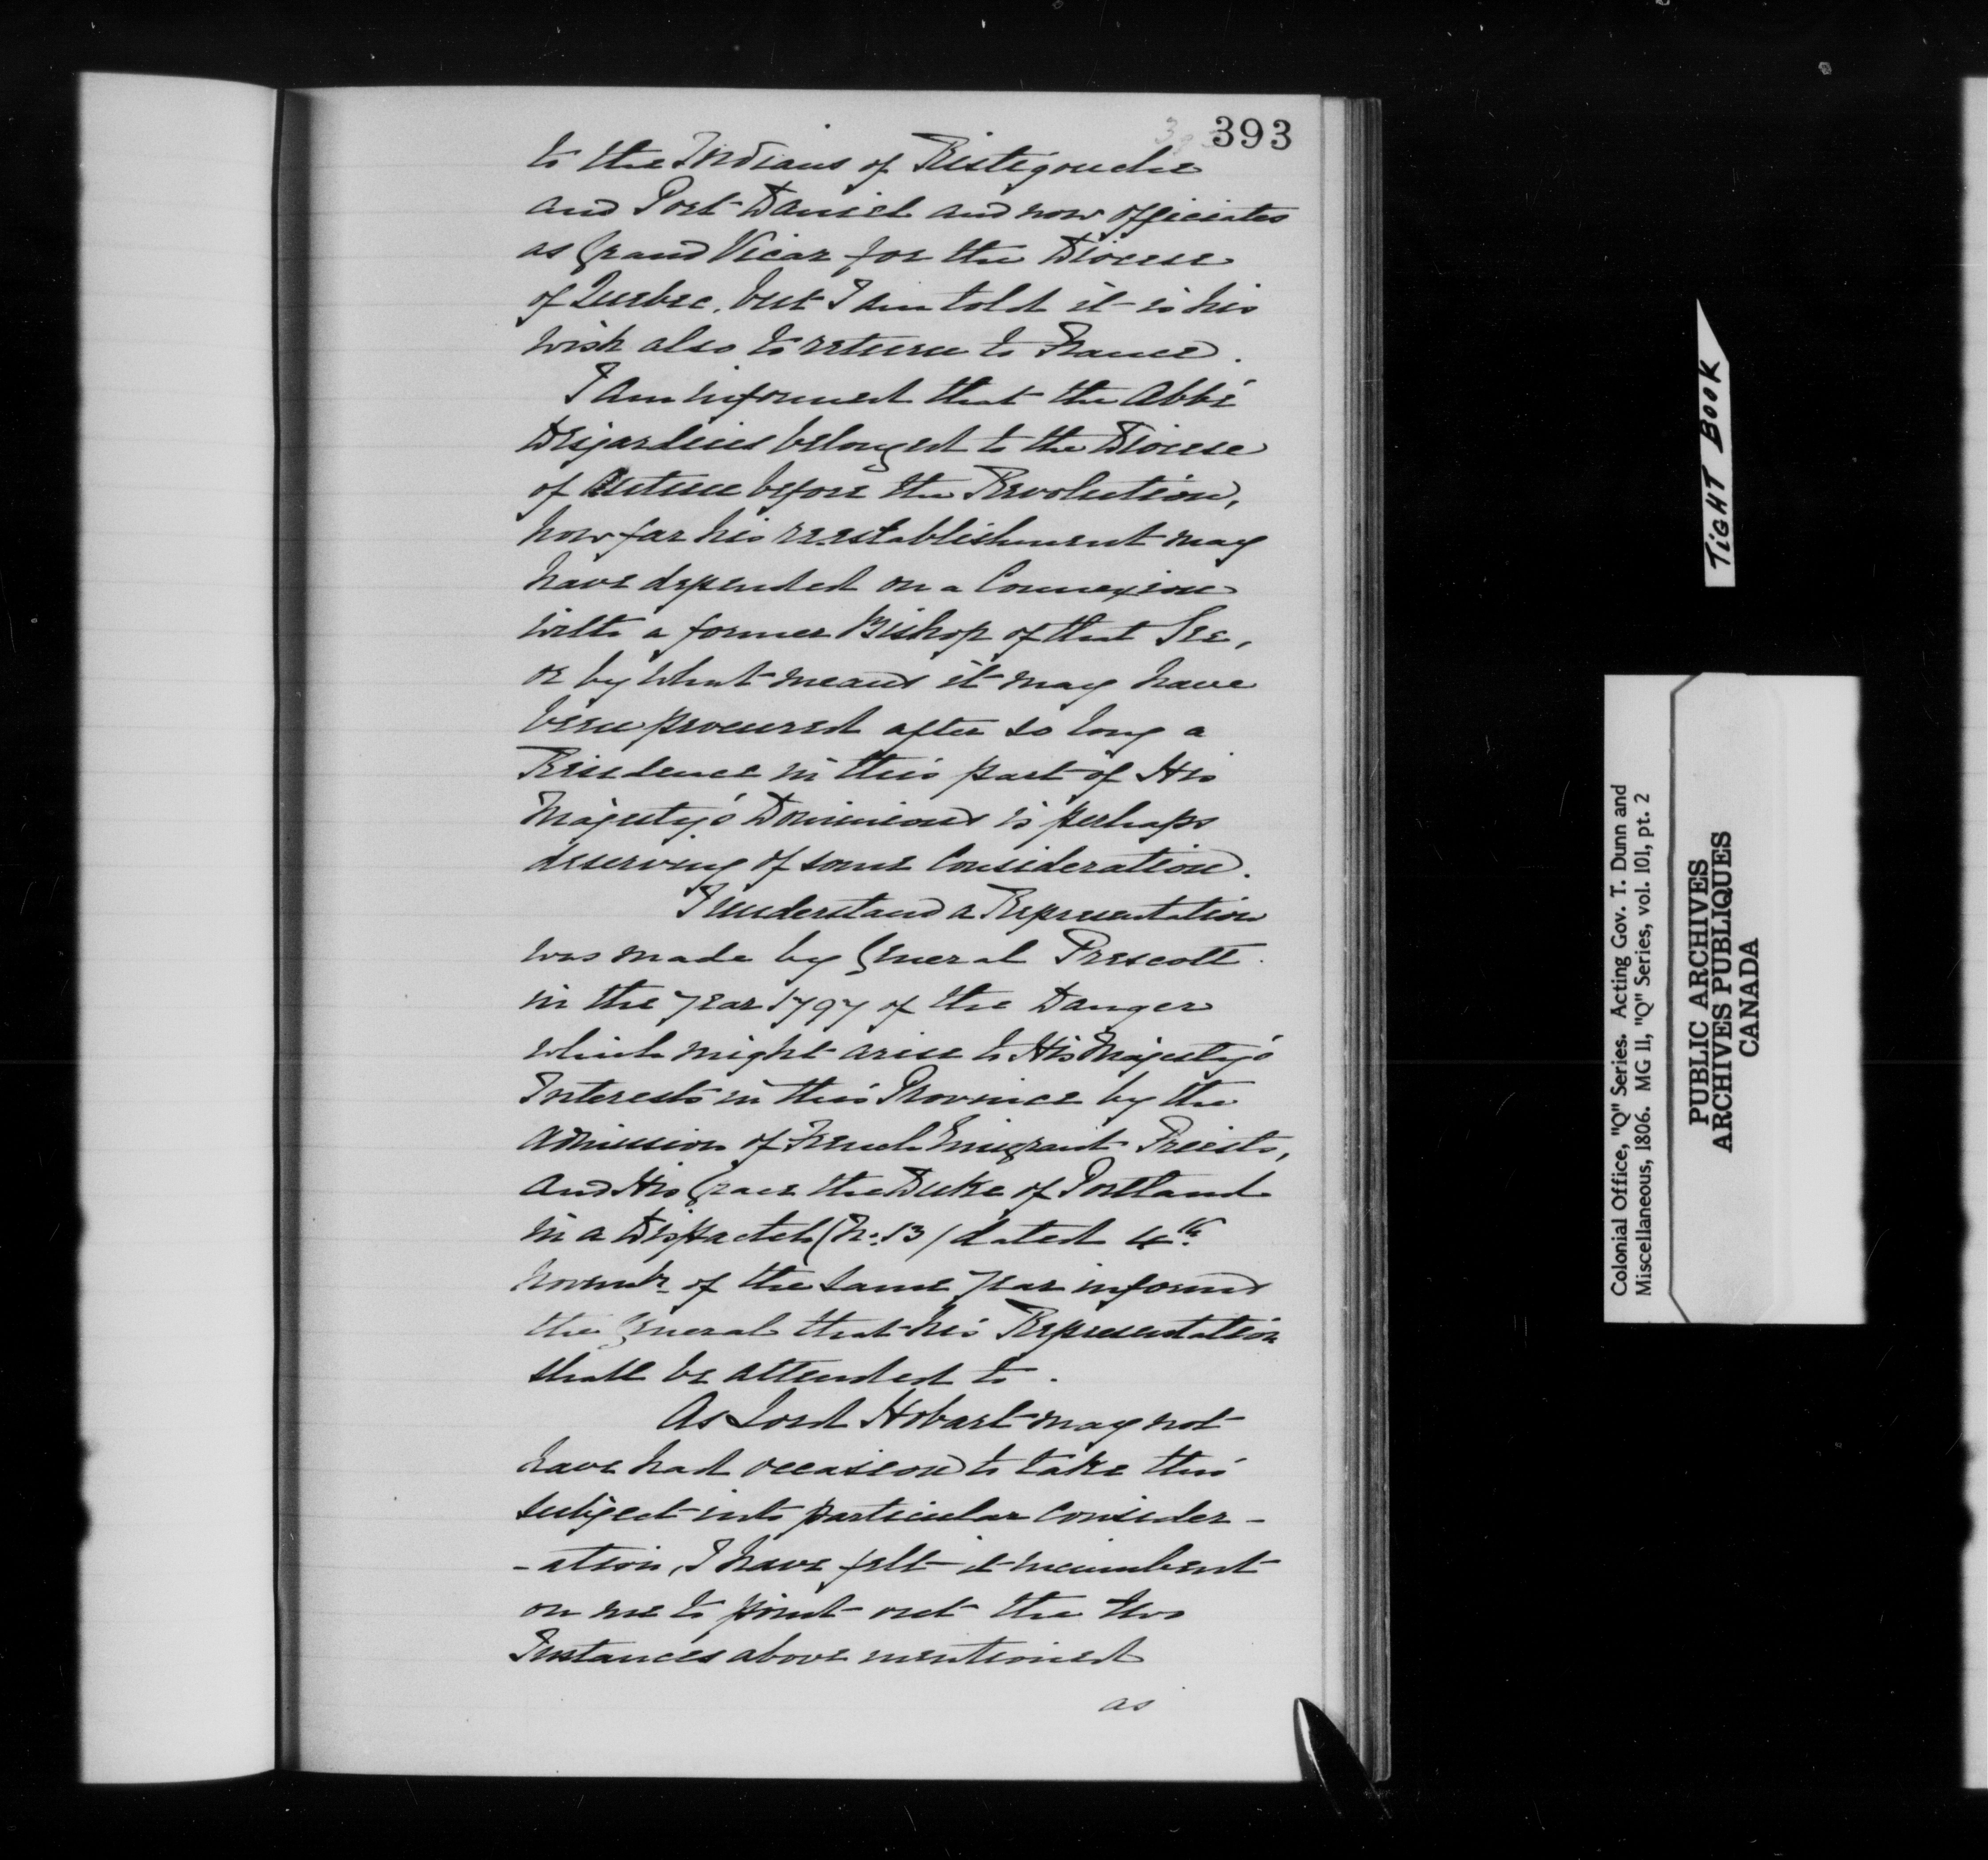 393
to the Indians of Ristigouche
and Port-Daniel and now officiates
as Grand Vicar for the Diocese
of Quebec, but I am told it is his
wish also to return to France.
I am informed that the Abbé
Desjardins belonged to the Diocese
of Autun before the Revolution,
how far his reestablishment may
have depended on a Connexion
with a former Bishop of that See,
or by what means it may have
been procured after so long a
Residence in this part of His
Majesty's Dominions is perhaps
deserving of some Consideration.
I understand a Representation
was made by General Prescott
in the year 1797 of the Danger
which might arise to His Majesty's
Interests in this Province by the
Admission of French Emigrant Priests,
and His Grace the Duke of Portland
in a Dispatch (No. 13) dated 4th
Novembr. of the same year informs
the General that his Representation
shall be attended to.
As Lord Hobart may not
have had occasion to take this
subject into particular consider-
-ation, I have felt it incumbent
on me to point out the two
Instances above mentioned
as
TIGHT BOOK
Colonial Office, "Q" Series. Acting Gov. T. Dunn and
Miscellaneous, 1806. MG 11, "Q" Series, vol. 101, pt. 2
PUBLIC ARCHIVES
ARCHIVES PUBLIQUES
CANADA